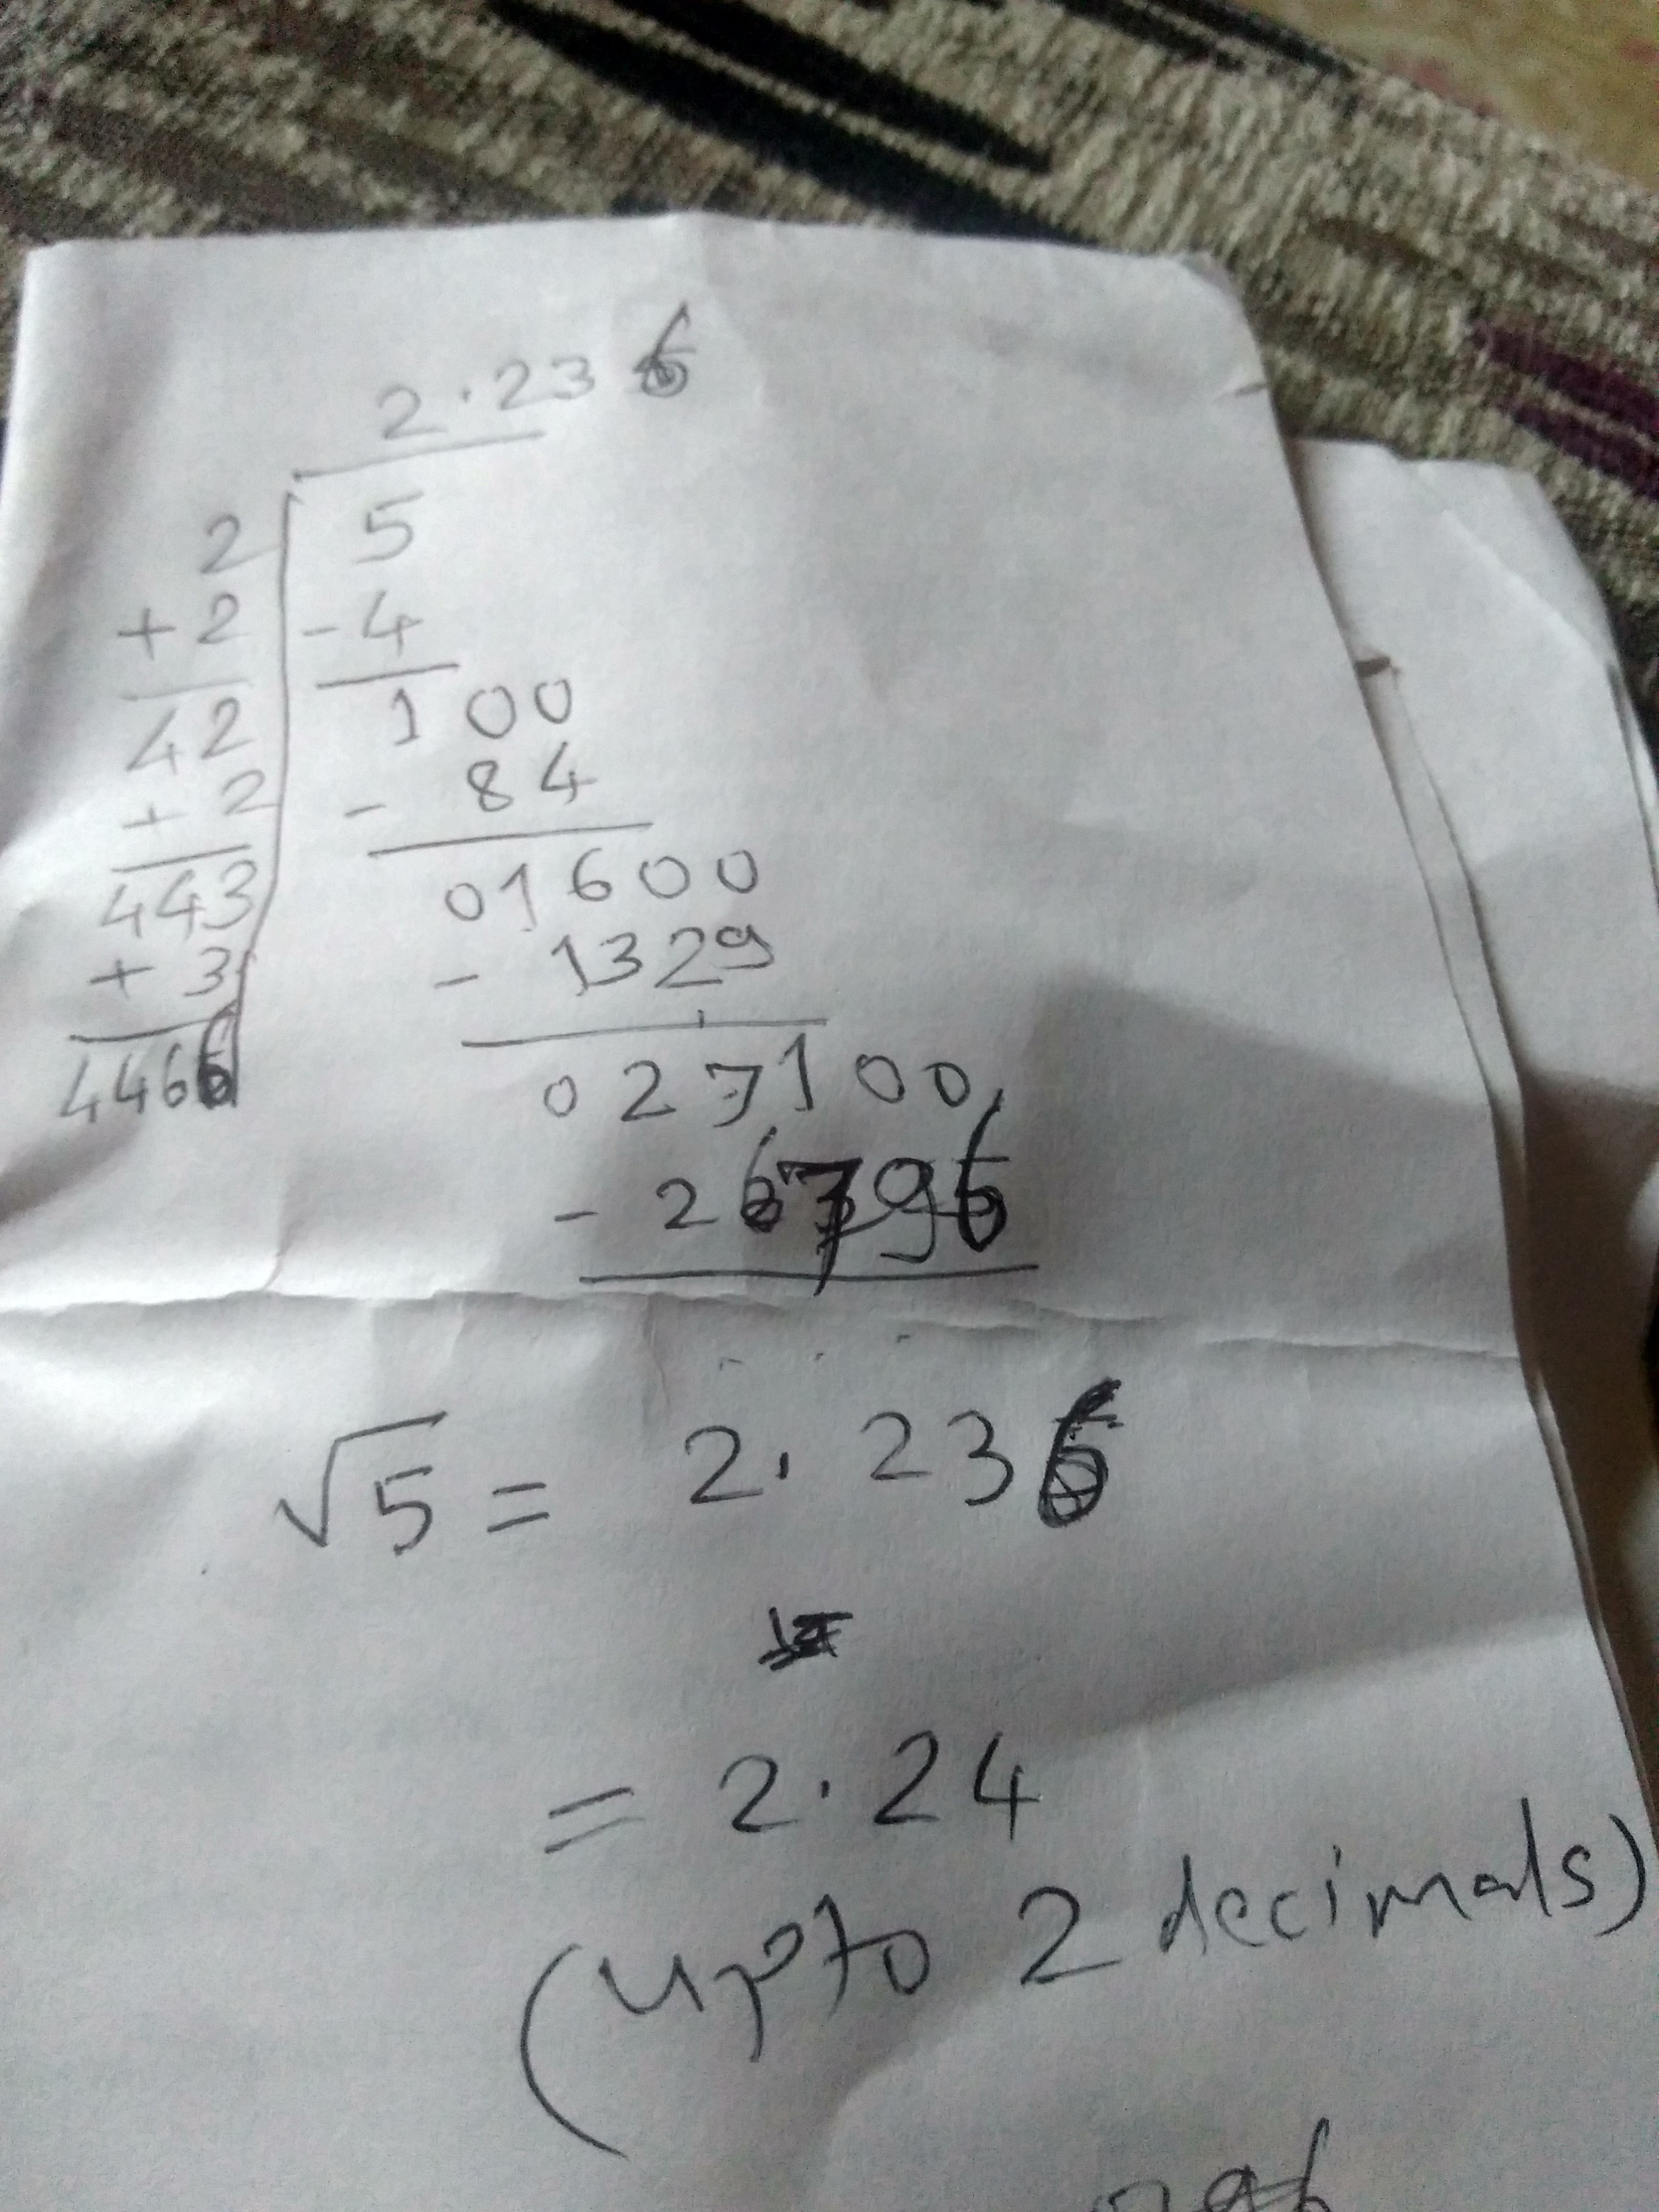 2.236
2 5
+2 -4
42 100
+2 -84
443 01600
+3 -1329
4466 027100
-26796
√5 = 2.236
= 2.24
(upto 2 decimals)